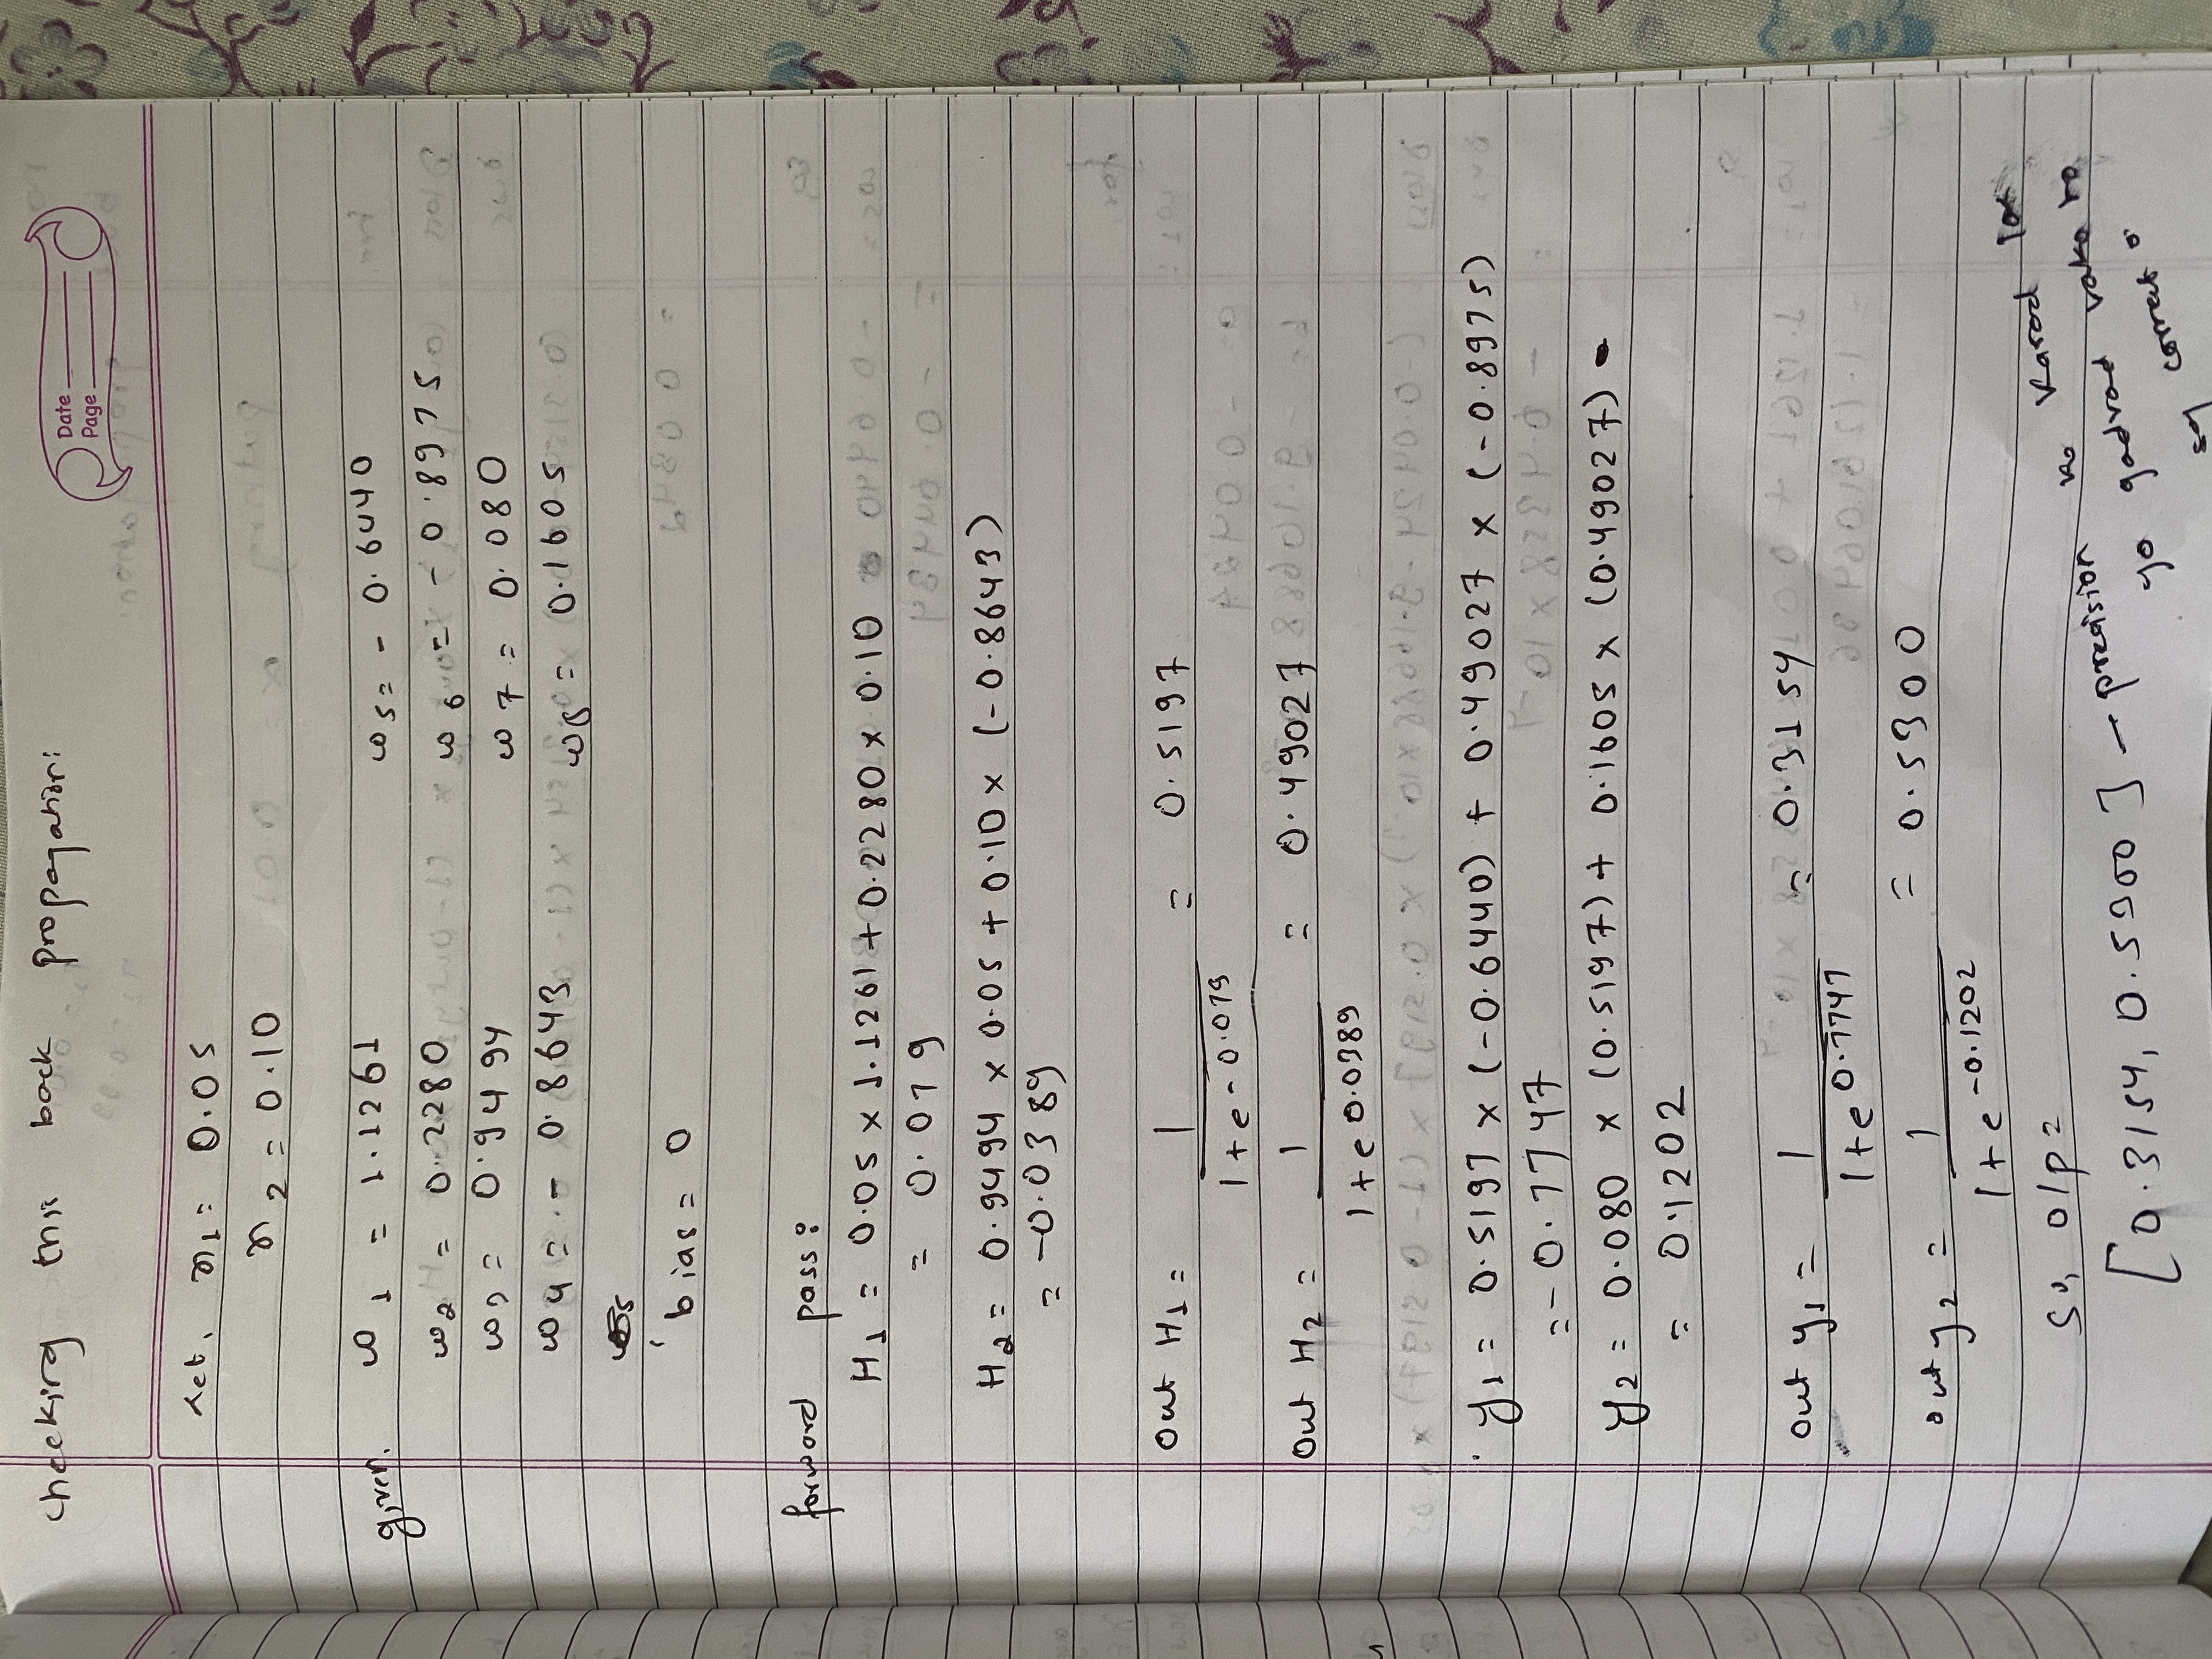 checking this back propagation:
Date
Page
Let, x1 = 0.05
x2 = 0.10
given. w1 = 1.1261 w5 = - 0.6440
w2 = 0.2280 w6 = - 0.8975
w3 = 0.9494 w7 = 0.080
w4 = - 0.8643 w8 = 0.1605
bias = 0
forward pass:
H1 = 0.05 x 1.1261 + 0.2280 x 0.10
= 0.079
H2 = 0.9494 x 0.05 + 0.10 x (-0.8643)
= -0.0389
out H1 = 1 / 1+e^-0.079 = 0.5197
out H2 = 1 / 1+e^0.0389 = 0.49027
y1 = 0.5197 x (-0.6440) + 0.49027 x (-0.8975)
= -0.7747
y2 = 0.080 x (0.5197) + 0.1605 x (0.49027)
= 0.1202
out y1 = 1 / 1+e^0.7747 = 0.3154
out y2 = 1 / 1+e^-0.1202 = 0.5300
So, o/p =
[0.3154, 0.5300] - precision ko
yo gadvad vako ho
correct